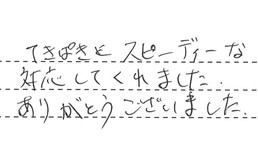 てきぱきとスピーディーな
対応してくれました.
ありがとうございました.